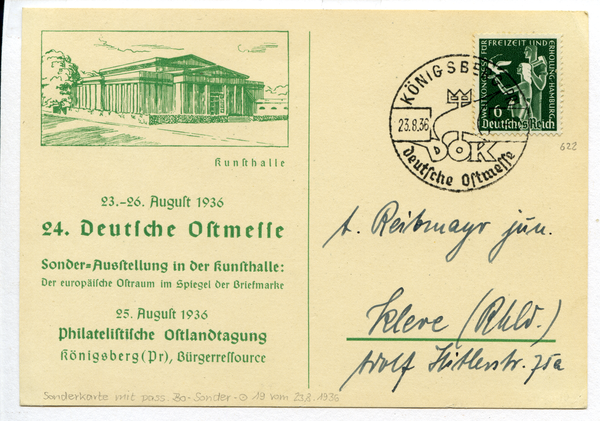 Kunsthalle
23.-26. August 1936
24. Deutsche Ostmesse
Sonder=Ausstellung in der Kunsthalle:
Der europäische Ostraum im Spiegel der Briefmarke
25. August 1936
Philatelistische Ostlandtagung
Königsberg (Pr), Bürgerressource
KÖNIGSB
23.8.36
DOK
deutsche Ostmesse
WELTKONGRESS FÜR
FREIZEIT UND
ERHOLUNG·HAMBURG
6
Deutsches Reich
622
A. Reibmayr jun.
Kleve (Rhld.)
Adolf Hitlerstr. 75a
Sonderkarte mit pass. Bo-Sonder-O 19 vom 23.8.1936